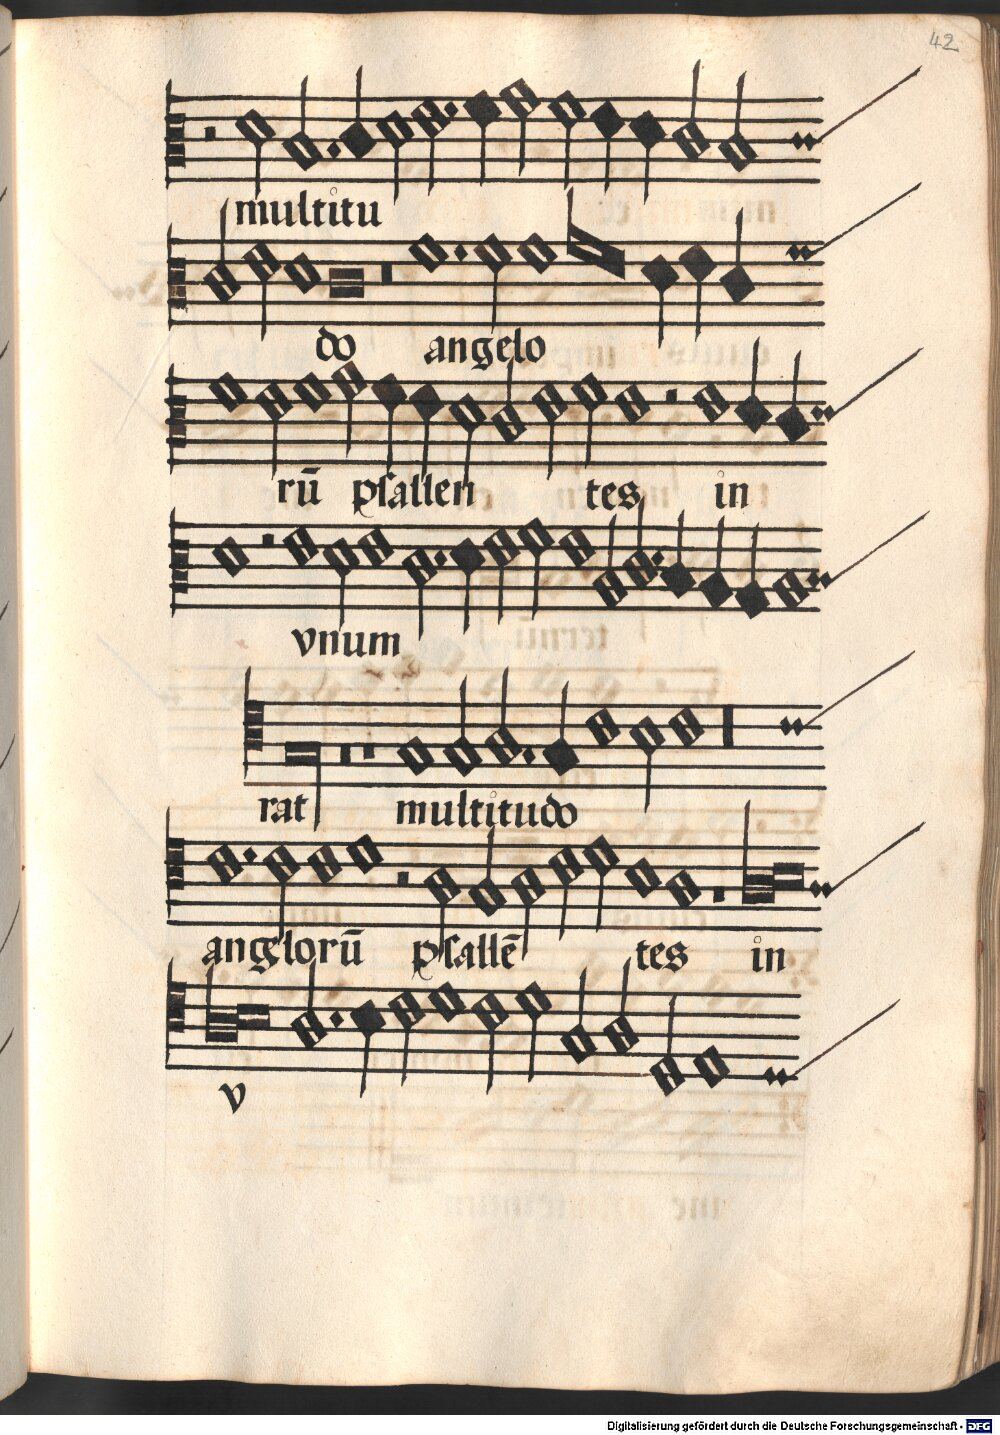 42
multitu
do angelo
rū psallen tes in
vnum
rat multitudo
angelorū psallē tes in
v
Digitalisierung gefördert durch die Deutsche Forschungsgemeinschaft - DFG